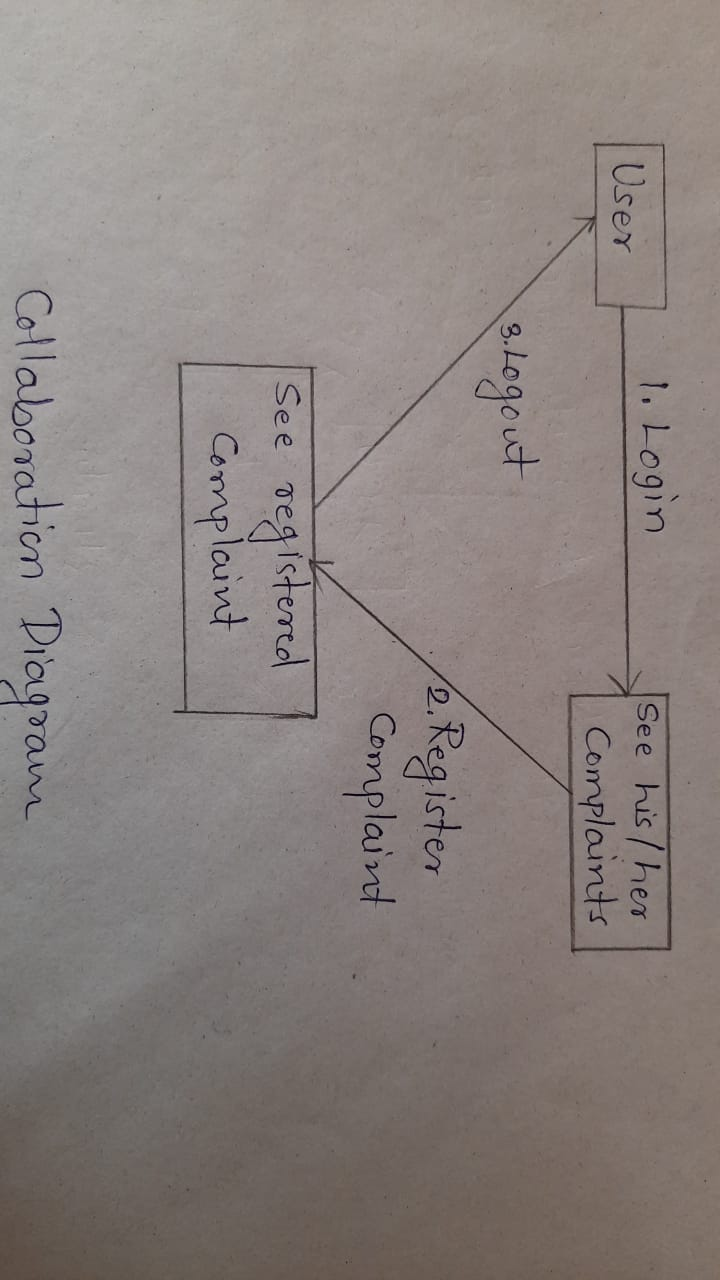 User
1. Login
See his/her
Complaints
3. Logout
2. Register
Complaint
See registered
Complaint
Collaboration Diagram